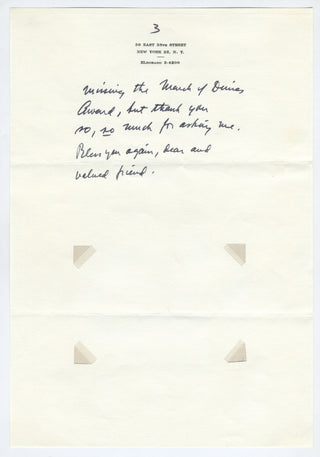 3
EAST STREET
NEW YORK 22, N. Y.
ELDORADO 5-
missing the March of Dimes
Award, but thank you
so, so much for asking me.
Bless you again, dear and
valued friend.